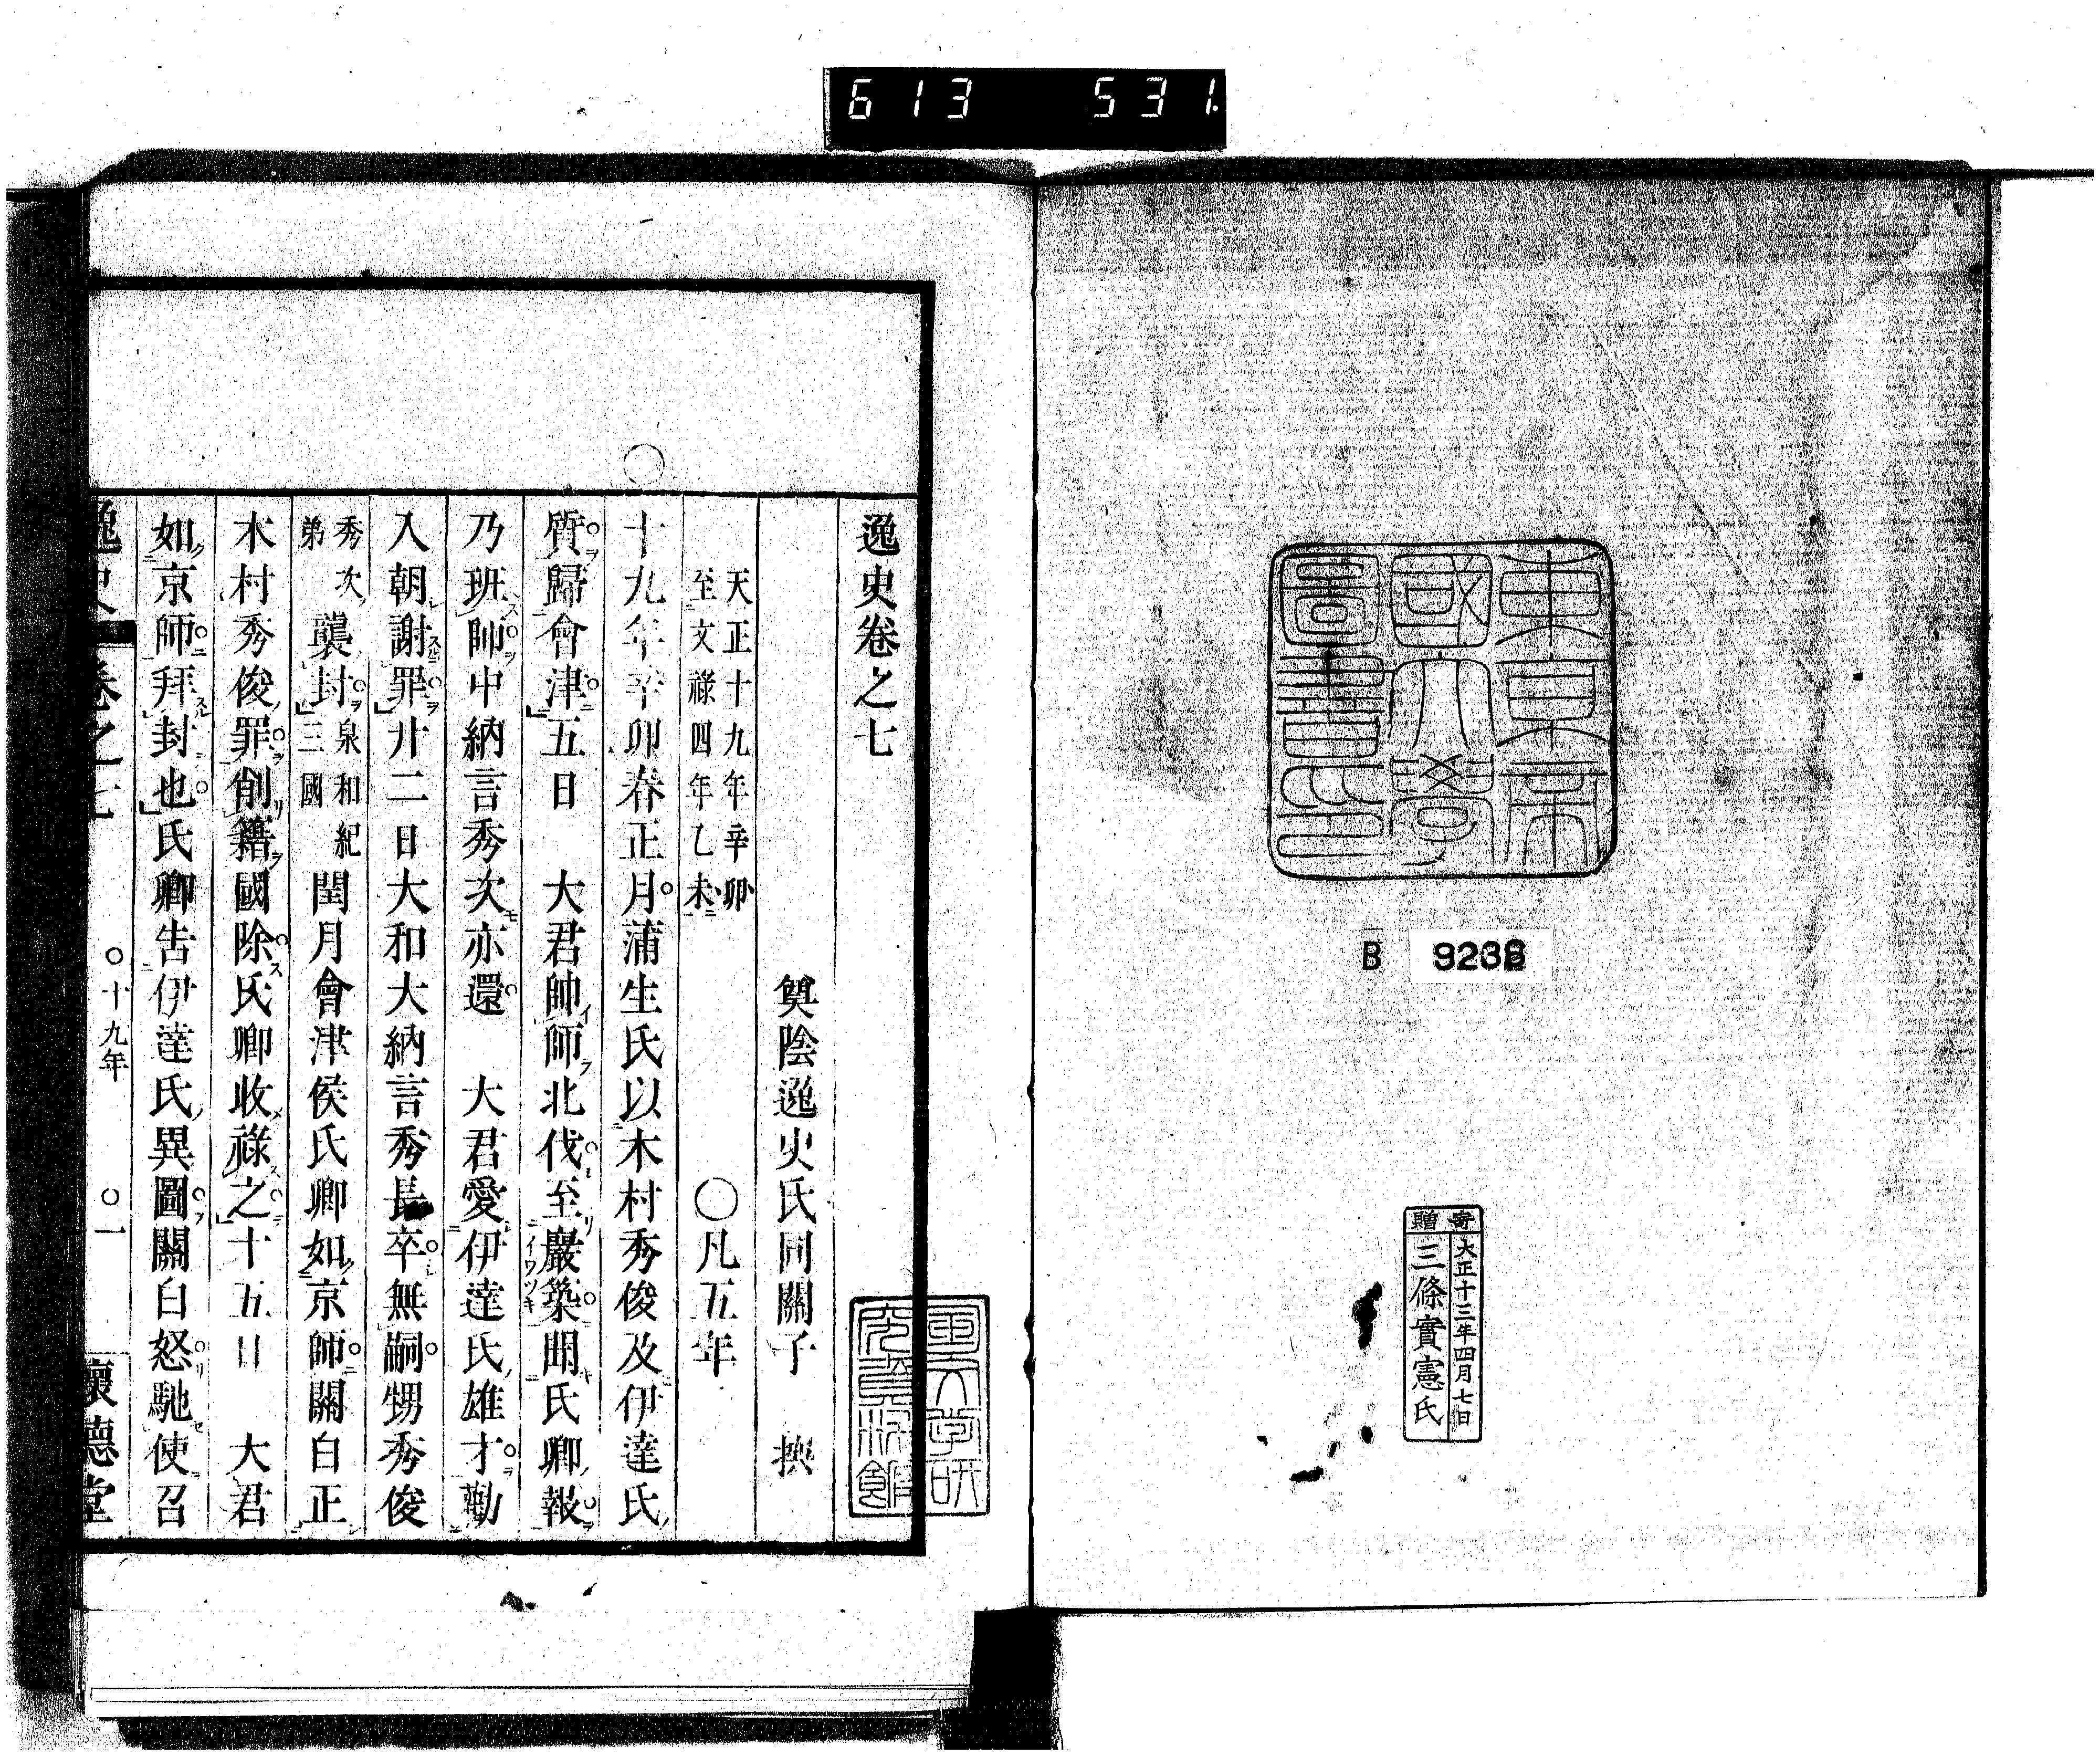 613 531
東京帝
國大學
圖書印
B 9238
寄贈
大正十三年四月七日
三條實憲氏
逸史卷之七
奠陰逸史氏同關子 撰
天正十九年辛卯
至文祿四年乙未
〇凡五年
〇
十九年辛卯春正月蒲生氏以木村秀俊及伊達氏
質歸會津五日 大君帥師北伐至巖築聞氏卿報
乃班師中納言秀次亦還 大君愛伊達氏雄才勸
入朝謝罪廿二日大和大納言秀長卒無嗣甥秀俊
秀次弟襲封泉和紀三國閏月會津侯氏卿如京師關白正
木村秀俊罪削籍國除氏卿收祿之十五日 大君
如京師拜封也氏卿告伊達氏異圖關白怒馳使召
逸史 卷之七 〇十九年 〇一 懷德堂